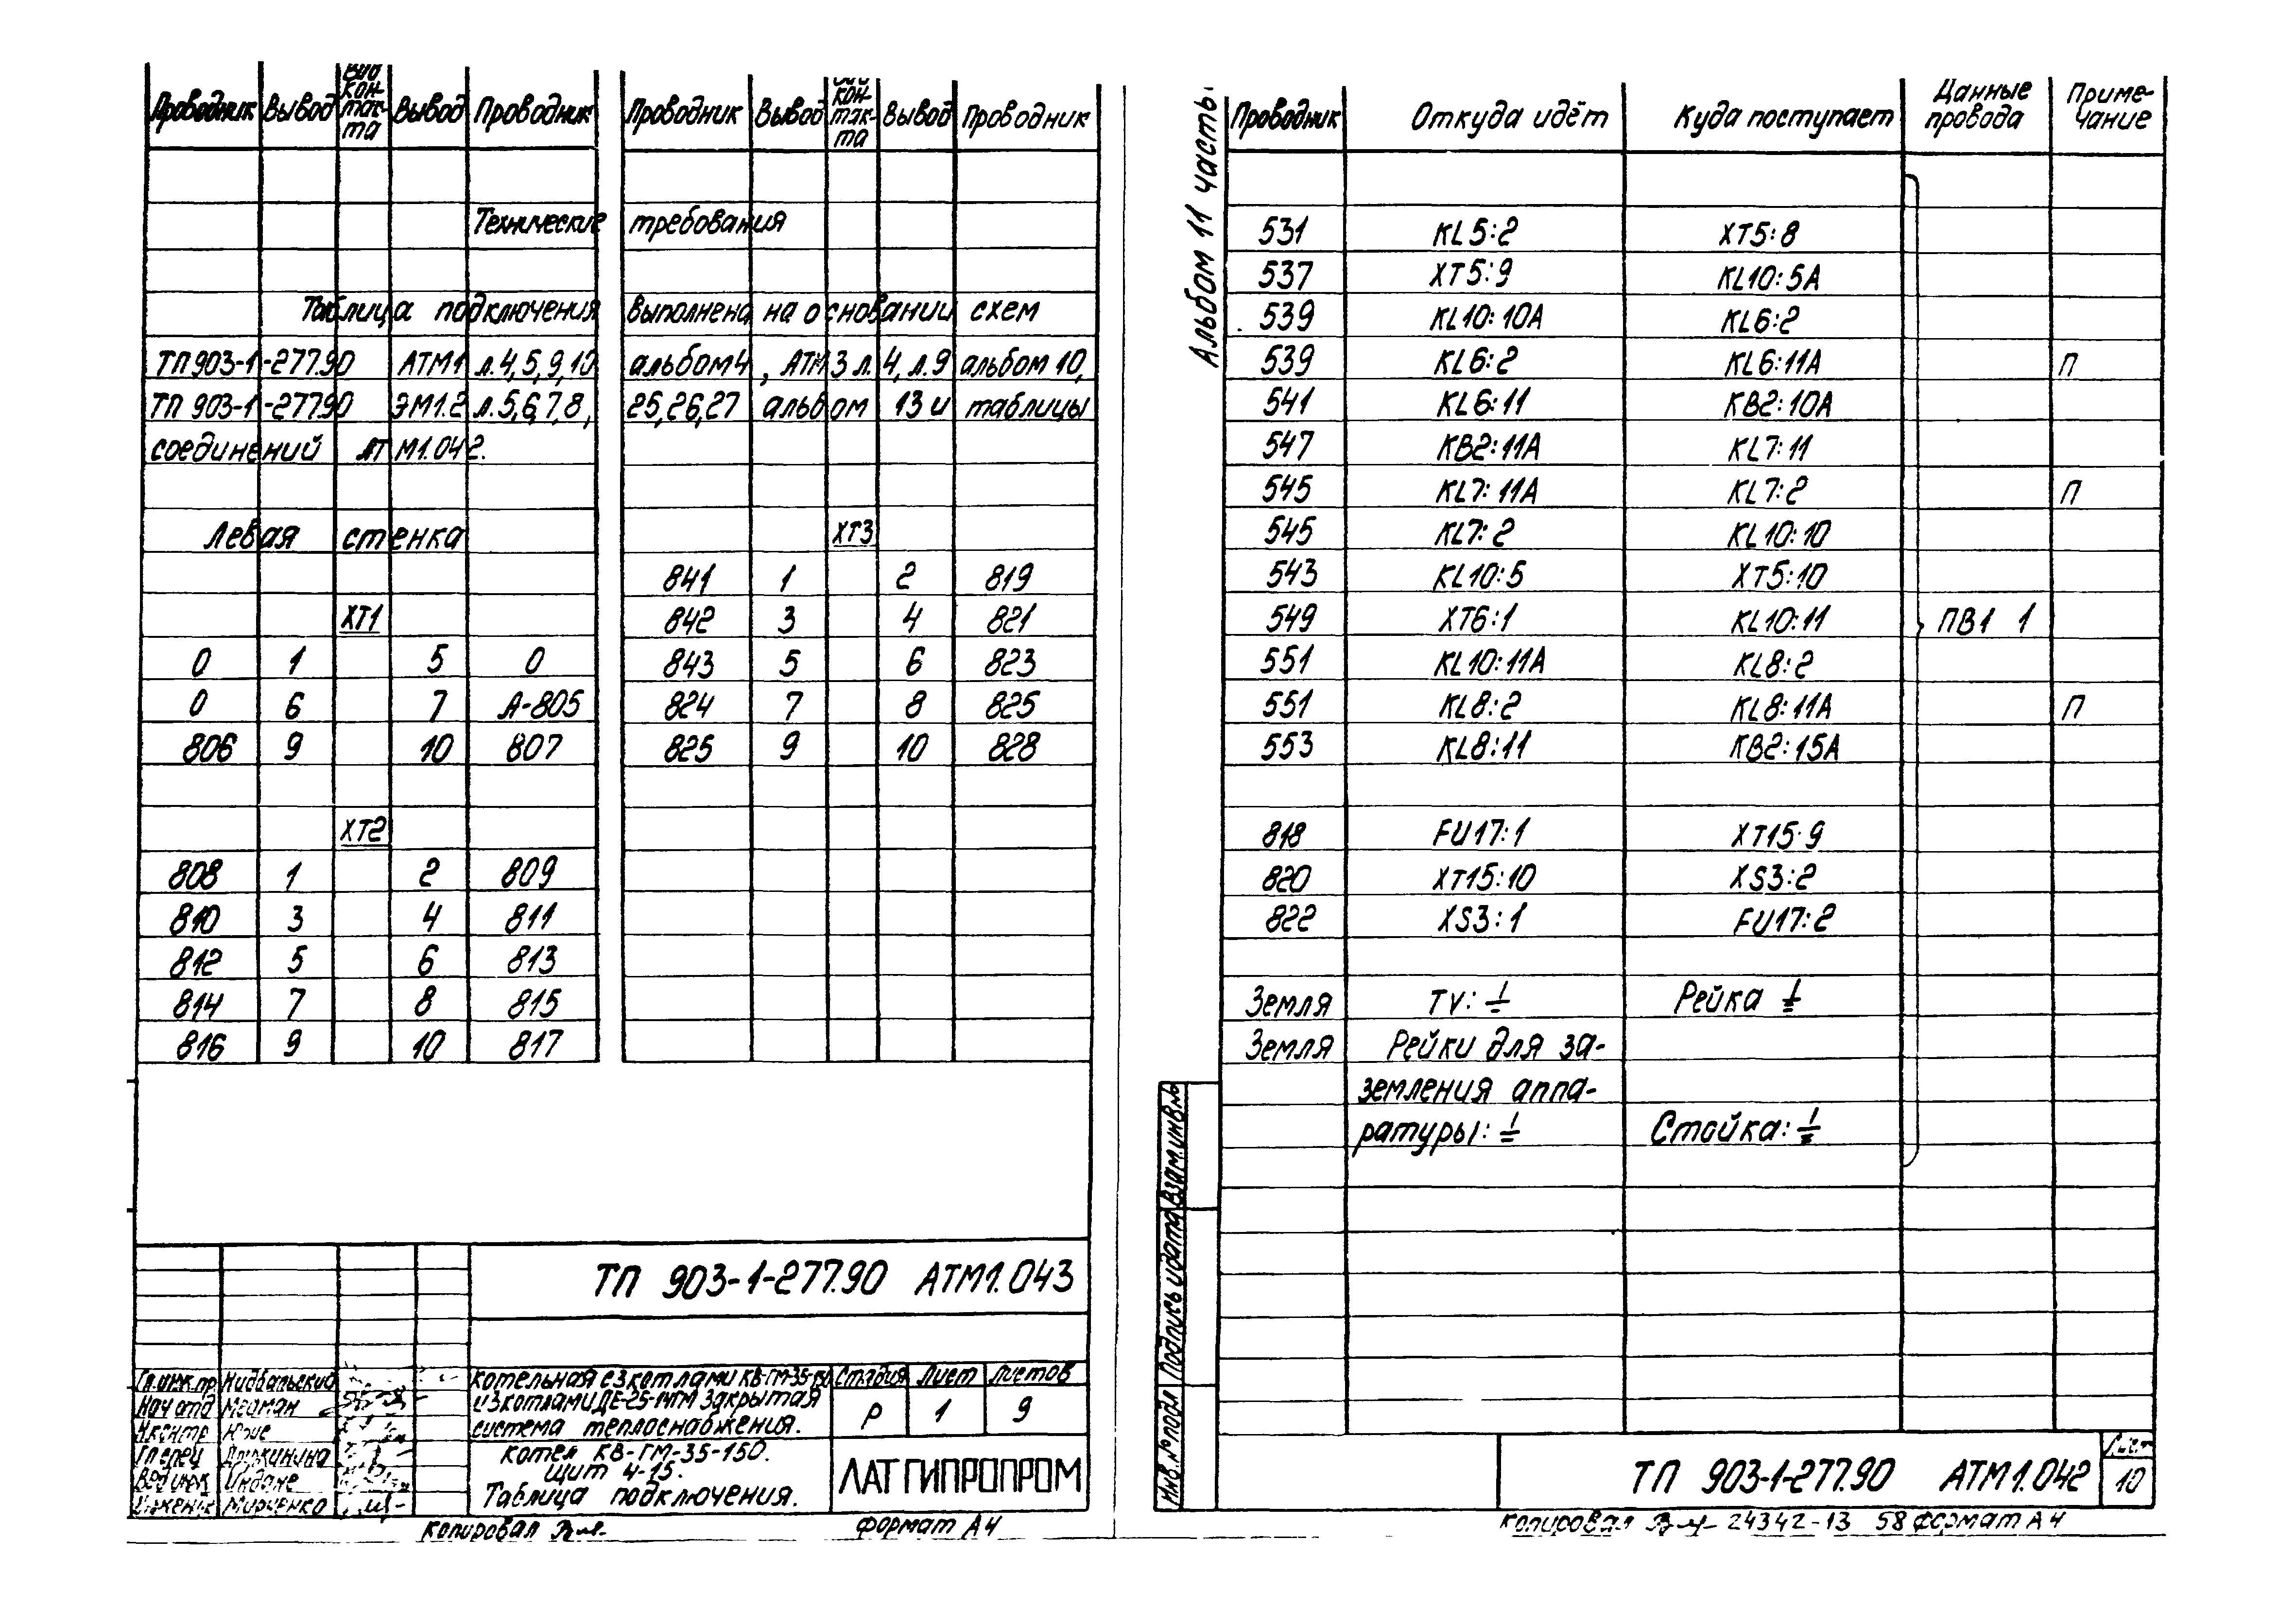 Проводник Вывод Вид контакта Вывод Проводник Проводник Вывод Вид контакта Вывод Проводник
Технические требования
Таблица подключения выполнена на основании схем
ТП 903-1-277.90 АТМ1 л.4,5,9,10 альбом 4, АТМ3 л. 4, л.9 альбом 10,
ТП 903-1-277.90 ЭМ1.2 л.5,6,7,8, 25,26,27 альбом 13 и таблицы
соединений АТМ1.042.
Левая стенка
ХТ1
0 1 5 0
0 6 7 А-805
806 9 10 807
ХТ2
808 1 2 809
810 3 4 811
812 5 6 813
814 7 8 815
816 9 10 817
ХТ3
841 1 2 819
842 3 4 821
843 5 6 823
824 7 8 825
825 9 10 828
ТП 903-1-277.90 АТМ1.043
Гл.инж.пр Нидбальский
Нач отд Мейман
Н.контр Юрие
Гл спец Дружинина
Вед инж Индане
Инженер Мирченко
Котельная с 3 котлами КВ-ГМ-35-150
и 3 котлами ДЕ-25-14ГМ Закрытая
система теплоснабжения.
Стадия Лист Листов
Р 1 9
Котел КВ-ГМ-35-150.
Щит 4-15.
Таблица подключения.
ЛАТГИПРОПРОМ
Копировал
Формат А4
Альбом 11 часть
Проводник Откуда идёт Куда поступает Данные провода Примечание
531 KL5:2 XT5:8
537 XT5:9 KL10:5А
539 KL10:10А KL6:2
539 KL6:2 KL6:11А П
541 KL6:11 КВ2:10А
547 КВ2:11А KL7:11
545 KL7:11А KL7:2 П
545 KL7:2 KL10:10
543 KL10:5 XT5:10
549 XT6:1 KL10:11 ПВ1 1
551 KL10:11А KL8:2
551 KL8:2 KL8:11А П
553 KL8:11 КВ2:15А
818 FU17:1 XT15:9
820 XT15:10 XS3:2
822 XS3:1 FU17:2
Земля TV:⏚ Рейка ⏚
Земля Рейки для за-
земления аппа-
ратуры:⏚ Стойка:⏚
Взам.инв.№
Подпись и дата
Инв.№ подл
ТП 903-1-277.90 АТМ1.042
Лист
10
Копировал 24342-13 58 формат А4